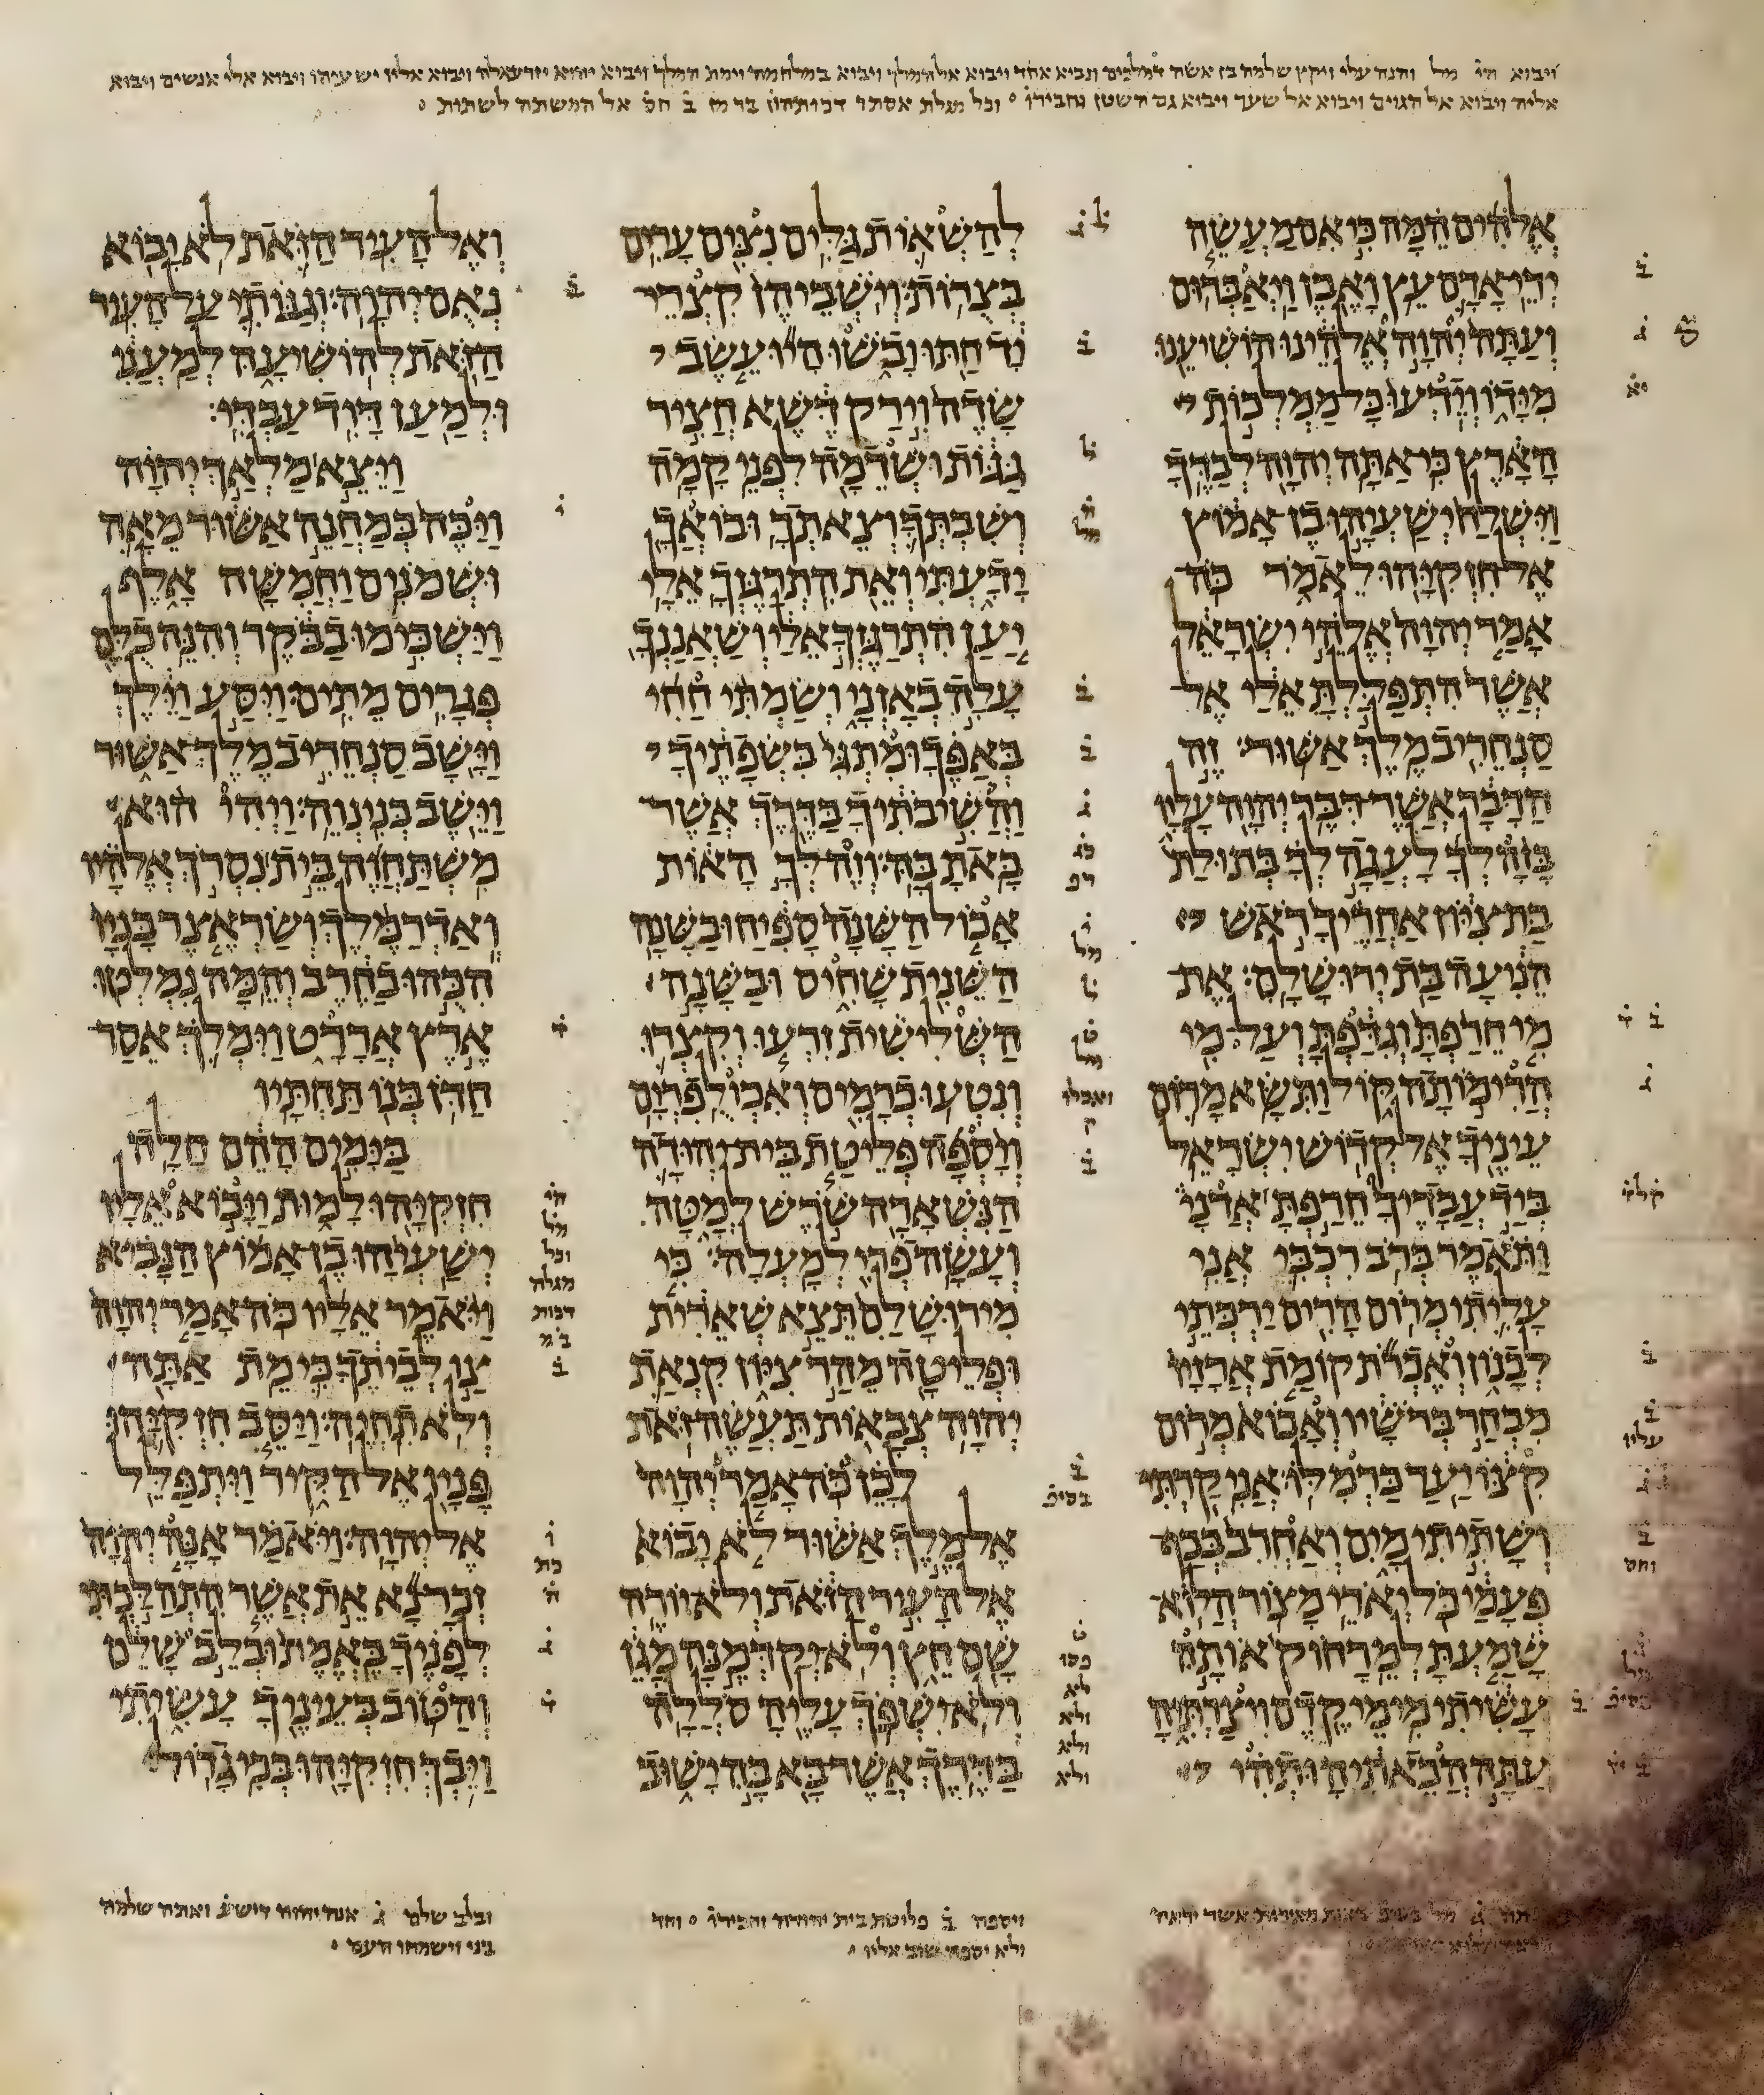 ויבוא הי מל והנה עלי ויקץ שלמה בן אשה דמלכים ונביא אחד ויבוא אל המלך ויבוא במלחמה וימת המלך ויבוא יהוא יזרעאלה ויבוא אליו ישעיהו ויבוא אלי אנשים ויבוא
אליה ויבוא אל הגוים ויבוא אל שער ויבוא גם השטן וחבירו וכל מגלת אסתר דכותהון בר מן ב חס אל המשתה לשתות
אלהים המה כי אם מעשה
ידי אדם עץ ואבן ויאבדום
ועתה יהוה אלהינו הושיענו
מידו וידעו כל ממלכות
הארץ כי אתה יהוה לבדך
וישלח ישעיהו בן אמוץ
אל חזקיהו לאמר כה
אמר יהוה אלהי ישראל
אשר התפללת אלי אל
סנחריב מלך אשור זה
הדבר אשר דבר יהוה עליו
בזה לך לעגה לך בתולת
בת ציון אחריך ראש
הניעה בת ירושלם את
מי חרפת וגדפת ועל מי
הרימותה קול ותשא מרום
עיניך אל קדוש ישראל
ביד עבדיך חרפת אדני
ותאמר ברב רכבי אני
עליתי מרום הרים ירכתי
לבנון ואכרת קומת ארזיו
מבחר ברשיו ואבוא מרום
קצו יער כרמלו אני קרתי
ושתיתי מים ואחרב בכף
פעמי כל יארי מצור הלוא
שמעת למרחוק אותה
עשיתי מימי קדם ויצרתיה
עתה הבאתיה ותהי
להשאות גלים נצים ערים
בצרות וישביהן קצרי
יד חתו ובשו היו עשב
שדה וירק דשא חציר
גגות ושדמה לפני קמה
ושבתך וצאתך ובואך
ידעתי ואת התרגזך אלי
יען התרגזך אלי ושאננך
עלה באזני ושמתי חחי
באפך ומתגי בשפתיך
והשיבתיך בדרך אשר
באת בה וזה לך האות
אכול השנה ספיח ובשנה
השנית שחיס ובשנה
השלישית זרעו וקצרו
ונטעו כרמים ואכול פרים
ויספה פליטת בית יהודה
הנשארה שרש למטה
ועשה פרי למעלה כי
מירושלם תצא שארית
ופליטה מהר ציון קנאת
יהוה צבאות תעשה זאת
לכן כה אמר יהוה
אל מלך אשור לא יבוא
אל העיר הזאת ולא יורה
שם חץ ולא יקדמנה מגן
ולא ישפך עליה סללה
בדרך אשר בא בה ישוב
ואל העיר הזאת לא יבוא
נאם יהוה וגנותי על העיר
הזאת להושיעה למעני
ולמען דוד עבדי
ויצא מלאך יהוה
ויכה במחנה אשור מאה
ושמנים וחמשה אלף
וישכימו בבקר והנה כלם
פגרים מתים ויסע וילך
וישב סנחריב מלך אשור
וישב בנינוה ויהי הוא
משתחוה בית נסרך אלהיו
ואדרמלך ושראצר בניו
הכהו בחרב והמה נמלטו
ארץ אררט וימלך אסר
חדן בנו תחתיו
בימים ההם חלה
חזקיהו למות ויבוא אליו
ישעיהו בן אמוץ הנביא
ויאמר אליו כה אמר יהוה
צו לביתך כי מת אתה
ולא תחיה ויסב חזקיהו
פניו אל הקיר ויתפלל
אל יהוה ויאמר אנה יהוה
זכר נא את אשר התהלכתי
לפניך באמת ובלב שלם
והטוב בעיניך עשיתי
ויבך חזקיהו בכי גדול
ויספה ב פליטת בית יהודה וחבירו וחד
ולא יספתי שוב אליו
ובלב שלם ג אנה יהוה דישע ואתה שלמה
בני וישמחו העם